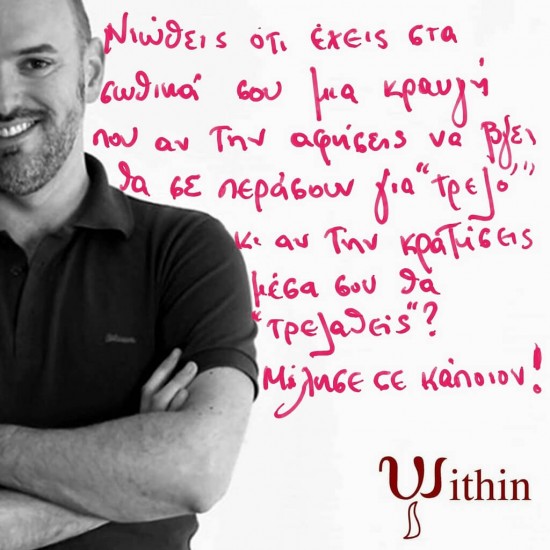 Νιώθεις ότι έχεις στα
σωθικά σου μια κραυγή
που αν την αφήσεις να βγει
θα σε περάσουν για "τρελό"
κι αν την κρατήσεις
μέσα σου θα
"τρελαθείς"?
Μίλησε σε κάποιον!
Ψithin